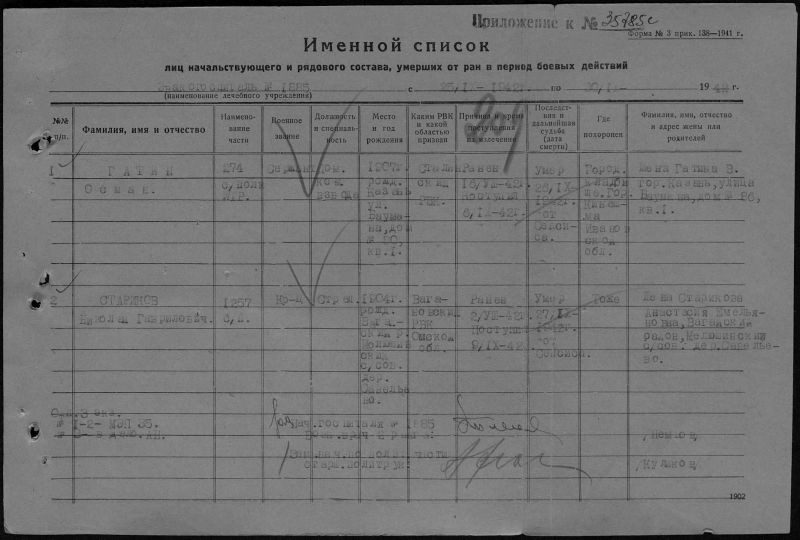 Приложение к № 35785с
Форма № 3 прик. 138—1941 г.
Именной список
лиц начальствующего и рядового состава, умерших от ран в период боевых действий
Эвакогоспиталь № 1885 с 25/IX-1942г. по 30/IX- 1942 г.
(наименование лечебного учреждения)
№№ п/п.
Фамилия, имя и отчество
Наименование части
Военное звание
Должность и специальность
Место и год рождения
Каким РВК и какой областью призван
Причина и время поступления на излечение
Последствия и дальнейшая судьба (дата смерти)
Где похоронен
Фамилия, имя, отчество и адрес жены или родителей
1
ГАТИН
Осман.
274
с/полк
Сержант
Пом.
ком.
взвода
1907г.
рожд.
Казань
ул.
Баумана, дом
№ 20,
кв.1.
Сталинский
РВК.
Ранен
16/VIII-42г.
поступил
6/IX-42г.
Умер
26/IX-
1942г.
от
Сепсиса.
Город.
кладбище.Гор.
Кинешма
Ивановской
обл.
Жена Гатина В.
гор.Казань,улица
кв.1.
2
СТАРИКОВ
Николай Гаврилович.
1257
Кр-ц
Стрел.
1904г.
рожд.
с/сов.
дер.
Савельево.
Вагановский
РВК
Омской
обл.
Ранен
2/VIII-42г.
Поступил
9/IX-42г.
Умер
27/IX-
1942г.
от
Сепсиса.
Тоже
Жена Старикова
Анастасия Емельяновна, Вагайский
район, Мелюшинский
с/сов. дер. Савельево.
Отп. 3 экз.
№ 1-2- МЭП 35.
Нач.госпиталя № 1885
Воен.врач 2 ранга:
/Немков/
Зам.нач.по полит.части
Старш.политрук:
/Куликов/
1902